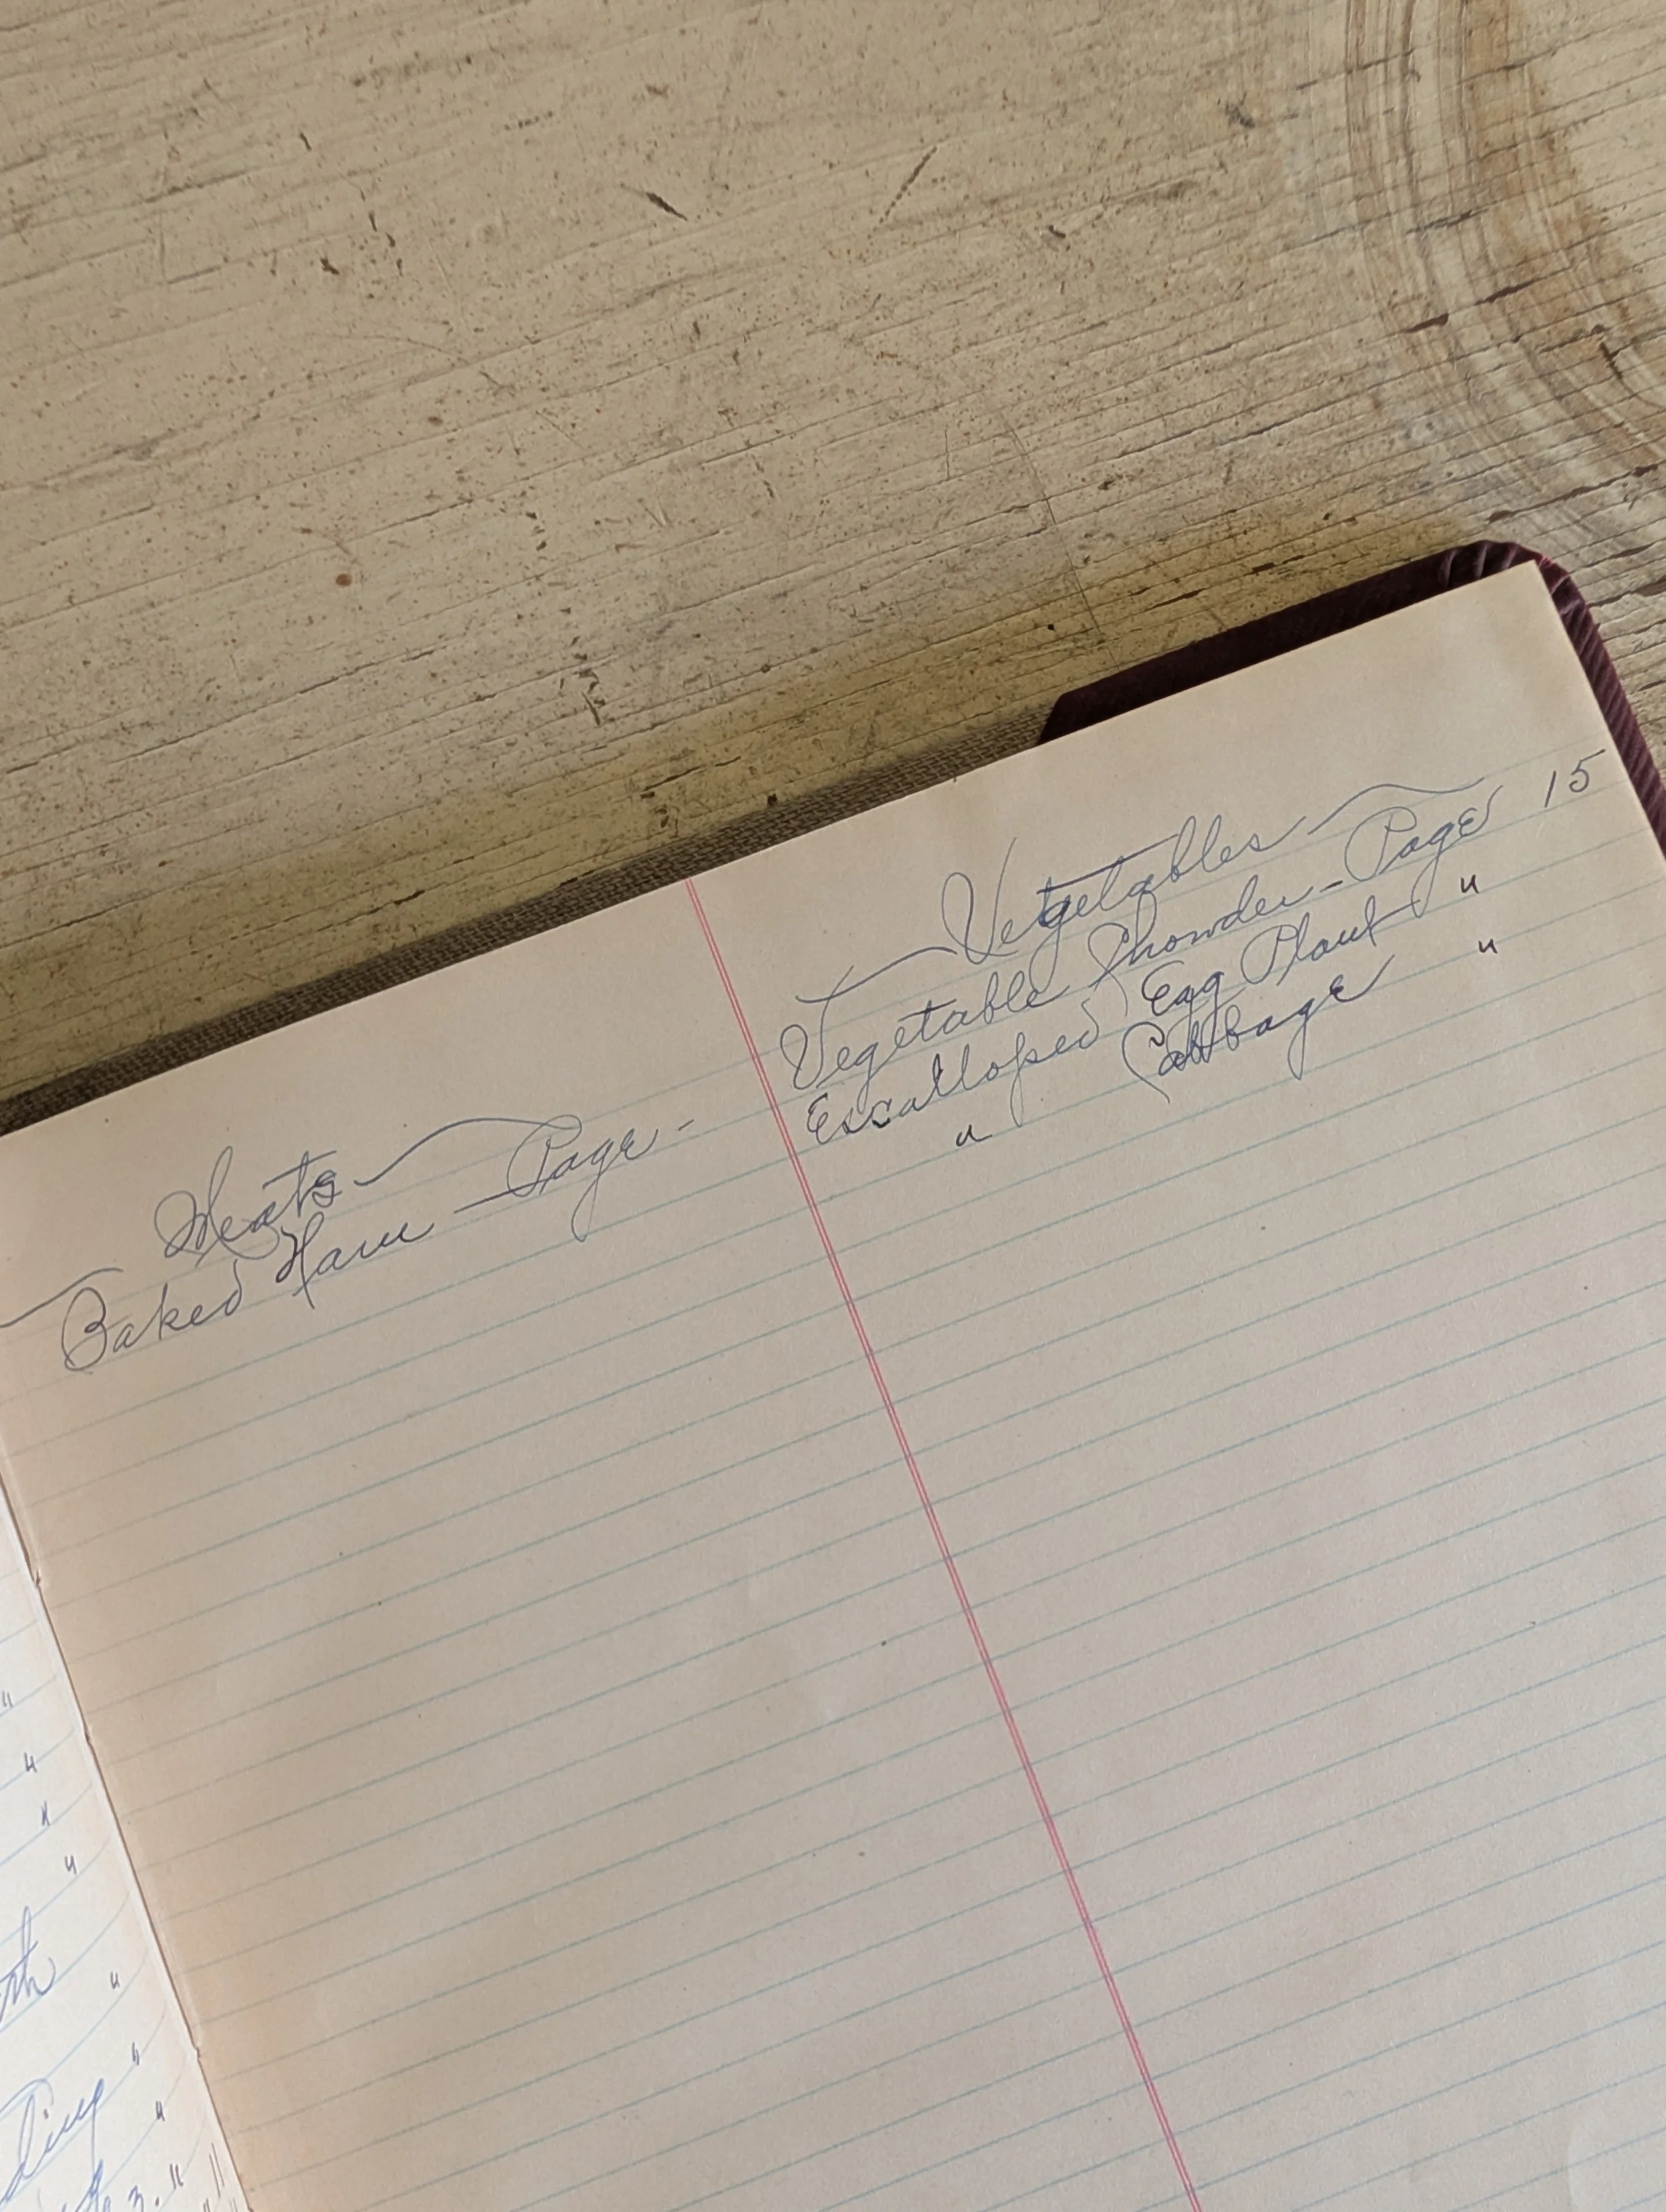 Meats
Baked Ham — Page -
Vegetables
Vegetable Chowder - Page 15
Escalloped Egg Plant "
" Cabbage "
"
"
"
"
"
"
"
3. "